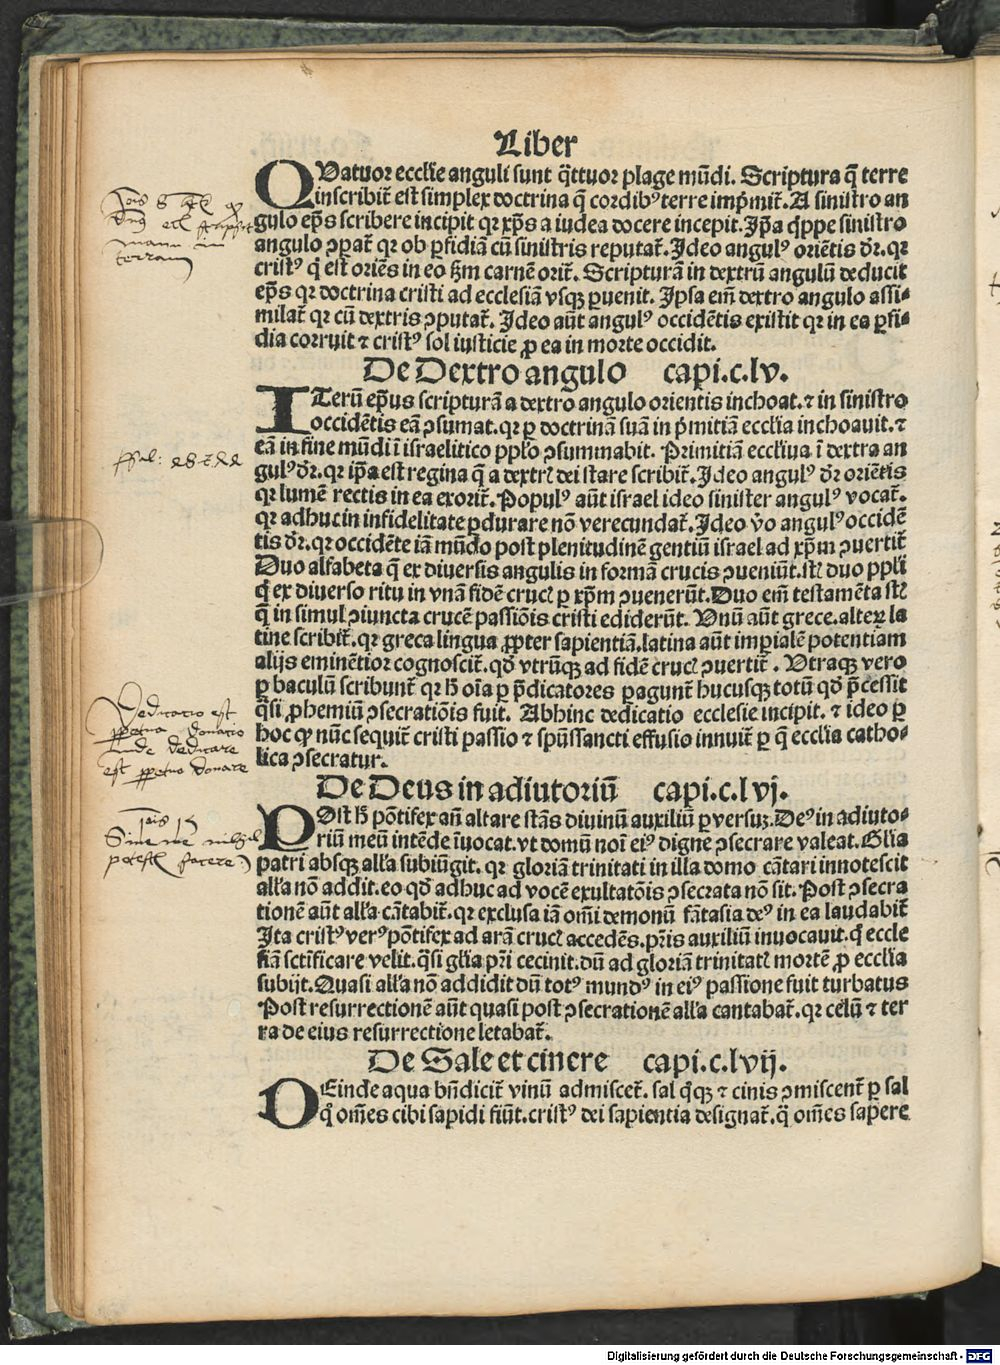 Liber
QUatuor eccl'ie anguli sunt q̈ttuor plage mūdi. Scriptura q̄ terre
inscribit̄ est simplex doctrina q̄ cordibꝰ terre imp̄mit̄. A sinistro an
gulo ep̄s scribere incipit qꝛ xp̄s a iudea docere incepit. Ip̄a q̄ppe sinistro
angulo ↄꝑat̄ qꝛ ob ꝑfidiā cū sinistris reputat̄. Ideo angulꝰ oriētis dr̄. qꝛ
cristꝰ q̇ est oriēs in eo ẜm carnē orit̄. Scripturā in dextrū angulū deducit
ep̄s qꝛ doctrina cristi ad ecclesiā vsqꝫ ꝑuenit. Ipsa em̄ dextro angulo assi-
milat̄ qꝛ cū dextris ↄputat̄. Ideo aūt angulꝰ occidētis existit qꝛ in ea ꝑfi-
dia corruit ⁊ cristꝰ sol iusticie ꝓ ea in morte occidit.
De Dextro angulo capi.c.lv.
ITerū ep̄us scripturā a dextro angulo orientis inchoat. ⁊ in sinistro
occidētis eā ↄsumat. qꝛ ꝑ doctrinā suā in p̄mitiā eccl'ia inchoauit. ⁊
eā in fine mūdi ī israelitico ppl'o ↄsummabit. Primitiā eccl'iua ī dextra an
gulꝰ dr̄. qꝛ ip̄a est regina q̄ a dextrꝭ dei stare scribit̄. Ideo angulꝰ dr̄ oriētis
qꝛ lumē rectis in ea exorit̄. Populꝰ aūt israel ideo sinister angulꝰ vocat̄.
qꝛ adhuc in infidelitate ꝑdurare nō verecundat̄. Ideo v̊o angulꝰ occidē
tis dr̄. qꝛ occidēte iā mūdo post plenitudinē gentiū israel ad xp̄m ↄuertit̄
Duo alfabeta q̄ ex diuersis angulis in formā crucis ↄueniūt. s̄t duo ppl'i
q̇ ex diuerso ritu in vnā fidē crucꝭ ꝑ xp̄m ↄuenerūt. Duo em̄ testamēta s̄t
q̄ in simul ↄiuncta crucē passiōis cristi ediderūt. Vnū aūt grece. alteꝝ la
tine scribit̄. qꝛ greca lingua ꝓpter sapientiā. latina aūt imꝑialē potentiam
alijs eminētior cognoscit̄. qđ vtrūqꝫ ad fidē crucꝭ ↄuertit̄. Vtraqꝫ vero
ꝑ baculū scribunt̄ qꝛ h̄ oīa ꝑ p̄dicatores ꝑagunt̄ hucusqꝫ totū qđ p̄cessit
q̈si ꝓhemiū ↄsecratiōis fuit. Abhinc dedicatio ecclesie incipit. ⁊ ideo ꝑ
hoc qđ nūc sequit̄ cristi passio ⁊ spūssancti effusio innuit̄ ꝑ q̄ eccl'ia catho-
lica ↄsecratur.
De Deus in adiutoriū capi.c.lvj.
POst h̄ pōtifex an̄ altare stās diuinū auxiliū ꝑ versuꝫ. Deꝰ in adiuto-
riū meū intēde īuocat. vt domū noī eiꝰ digne ↄsecrare valeat. Gl'ia
patri absqꝫ all'a subiūgit. qꝛ gloriā trinitati in illa domo cātari innotescit
all'a nō addit. eo qđ adhuc ad vocē exultatōis ↄsecrata nō sit. Post ↄsecra
tionē aūt all'a cātabit̄. qꝛ exclusa iā om̄i demonū fātasia deꝰ in ea laudabit̄
Ita cristꝰ verꝰ pōtifex ad arā crucꝭ accedēs. pr̄is auxiliū inuocauit. q̇ eccle
siā sctīficare velit. q̈si gl'ia pr̄i cecinit. dū ad gloriā trinitatꝭ mortē ꝓ eccl'ia
subijt. Quasi all'a nō addidit dū totꝰ mundꝰ in eiꝰ passione fuit turbatus
Post resurrectionē aūt quasi post ↄsecrationē all'a cantabat̄. qꝛ celū ⁊ ter
ra de eius resurrectione letabat̄.
De Sale et cinere capi.c.lvij.
DEinde aqua bn̄dicit̄ vinū admiscet̄. sal q̇qꝫ ⁊ cinis ↄmiscent̄ ꝑ sal
q̊ om̄es cibi sapidi fiūt. cristꝰ dei sapientia designat̄. q̊ om̄es sapere
terram
Dedicatio est
ꝑpetua donatio
inde dedicare
est ꝑpetuo donare
Sine me nihil
potestis facere
Digitalisierung gefördert durch die Deutsche Forschungsgemeinschaft - DFG